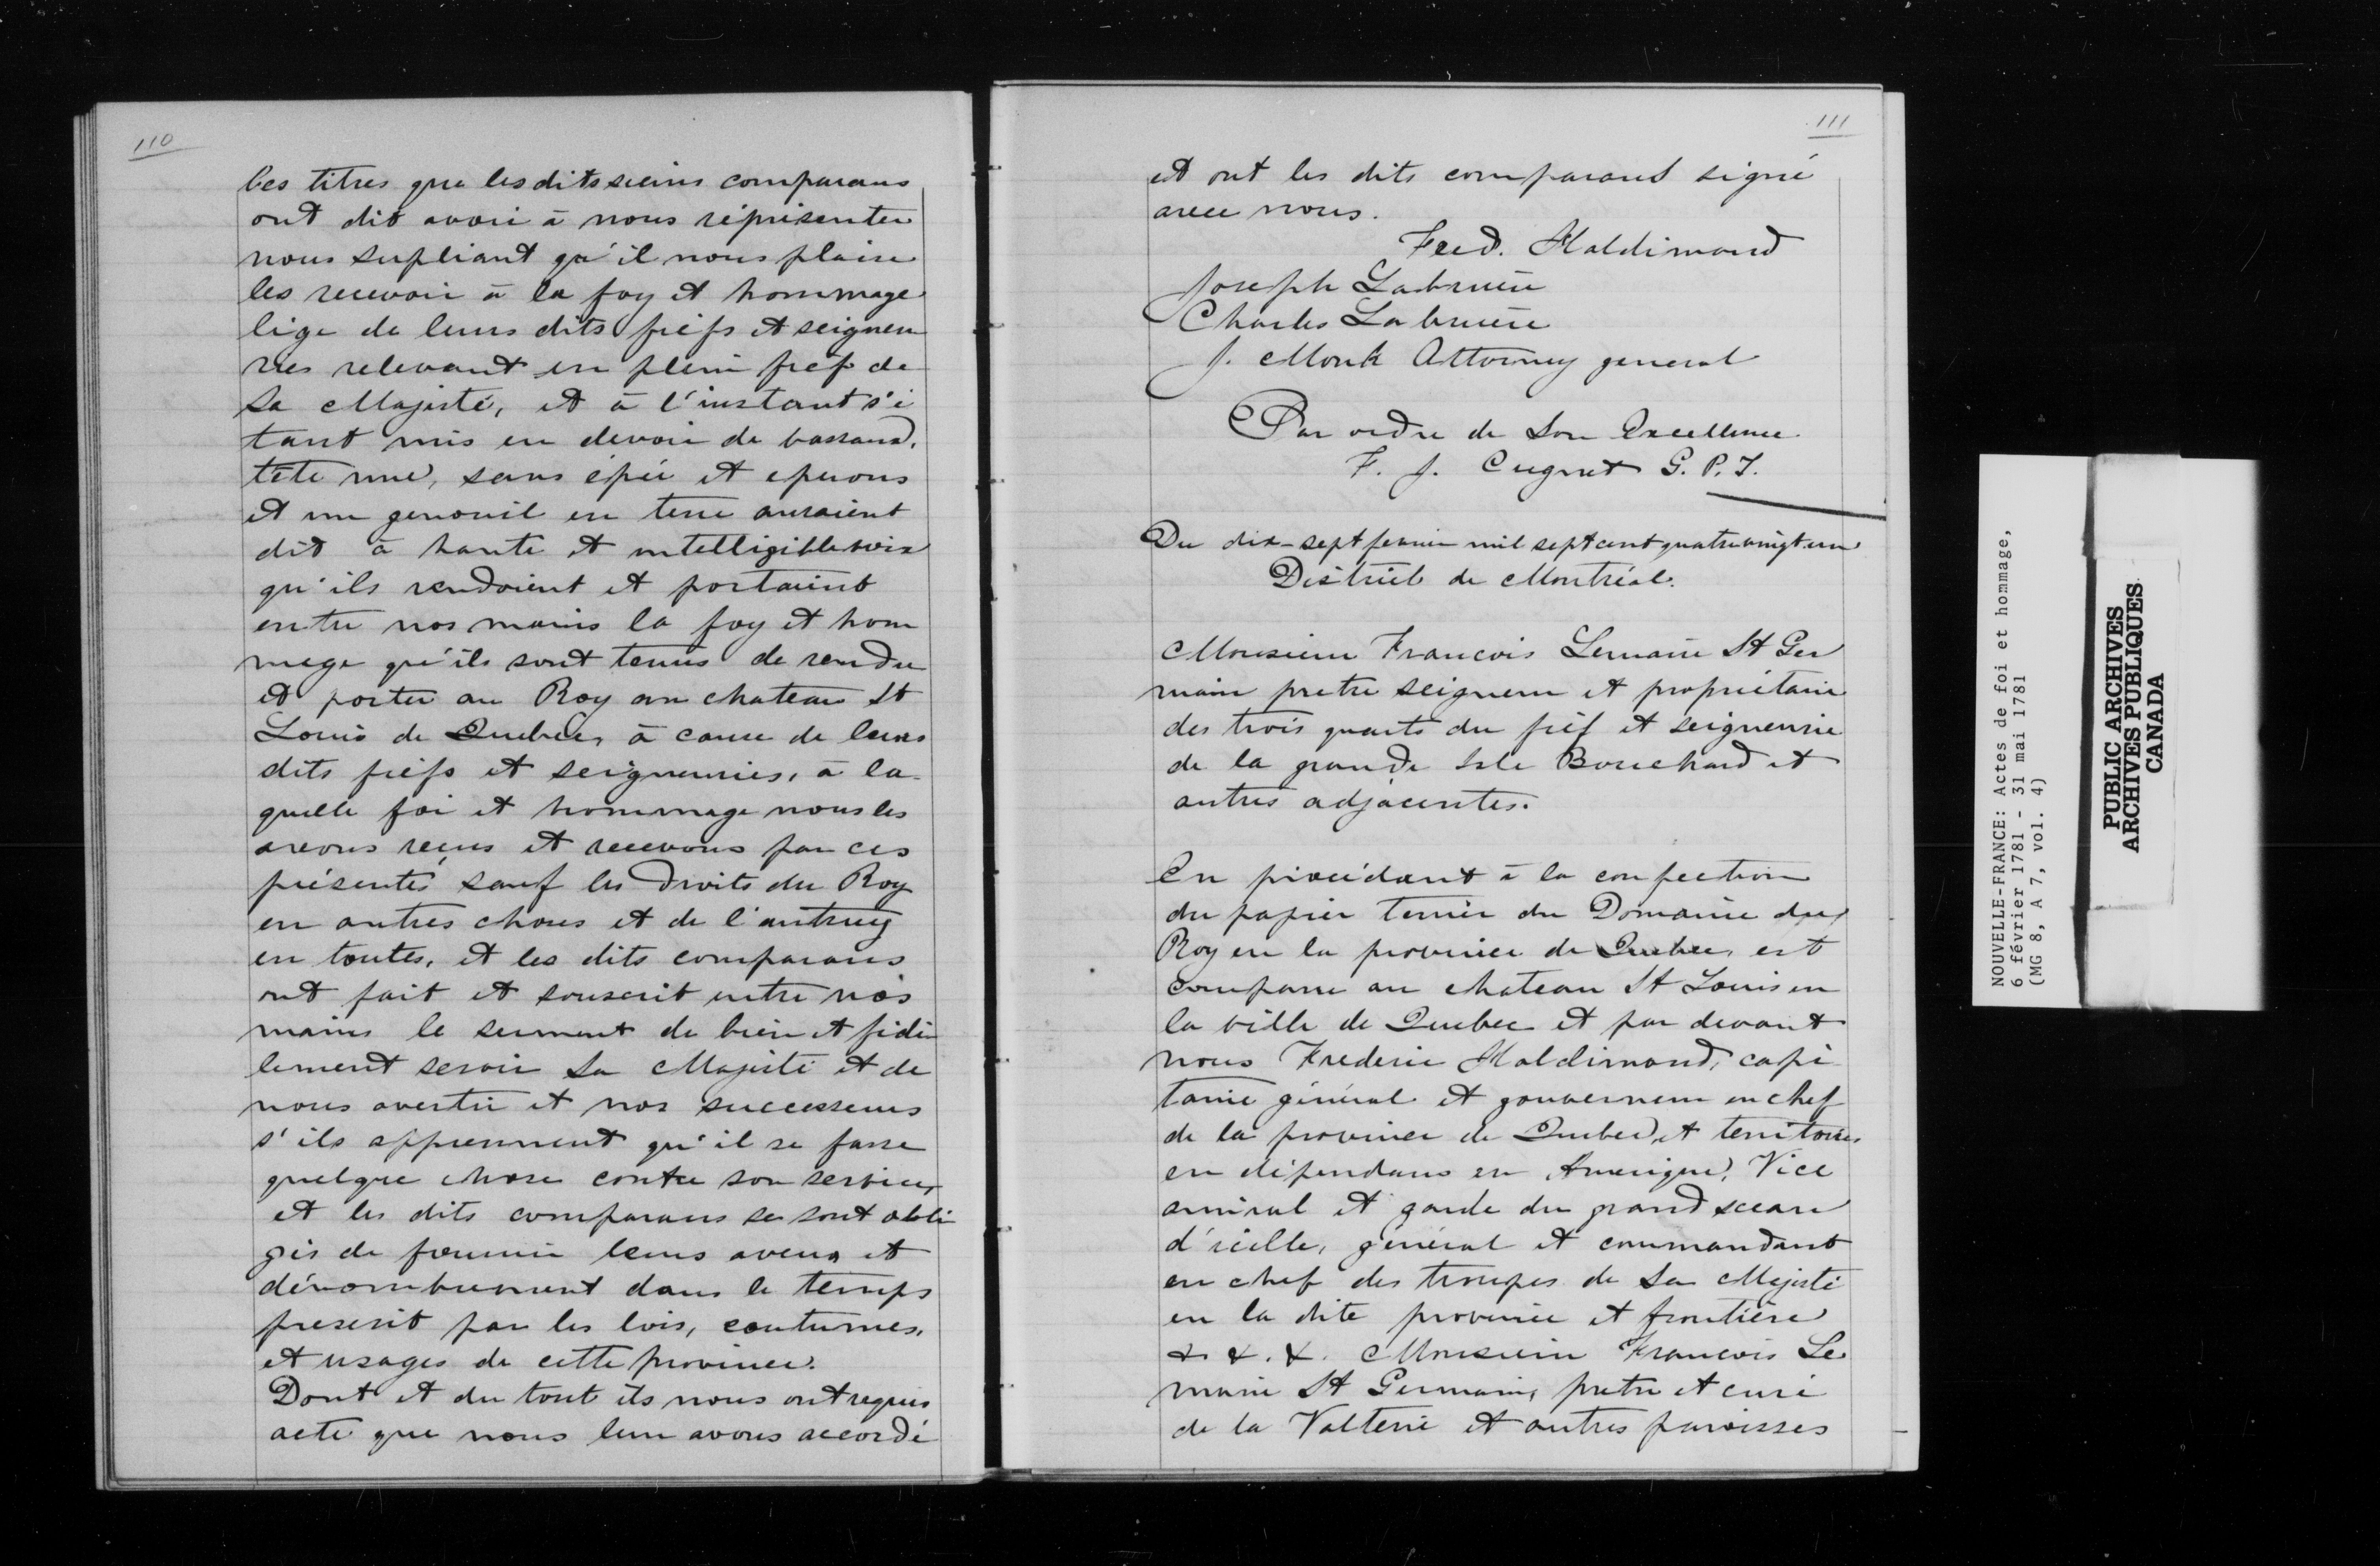 110
les titres que les dits sieurs comparans
ont dit avoir à nous réprésenter
nous supliant qu'il nous plaise
les recevoir à la foy et hommage
lige de leurs dits fiefs et seigneu
ries relevant en plein fief de
Sa Majesté, et à l'instant s'é
tant mis en devoir de vassaux,
tête nue, sans épée et eperons
et un genouil en terre auraient
dit à haute et intelligible voix
qu'ils rendoient et portaient
entre nos mains la foy et hom
mage qu'ils sont tenus de rendre
et porter au Roy au chateau St
Louis de Quebec, à cause de leurs
dits fiefs et seigneuries, à la
quelle foi et hommage nous les
avons reçus et recevons par ces
présentes sauf les droits du Roy
en autres choses et de l'autruy
en toutes, et les dits comparans
ont fait et souscrit entre nos
mains le serment de bien et fidè
lement servir Sa Majesté et de
nous avertir et nos successeurs
s'ils apprennent qu'il se fasse
quelque chose contre son service,
et les dits comparans se sont obli
gés de fournir leurs aveux et
dénombrement dans le temps
prescrit par les lois, coutumes,
et usages de cette province.
Dont et du tout ils nous ont requis
acte que nous leur avons accordé
111
et ont les dits comparans signé
avec nous.
Fred. Haldimand
Joseph Labruere
Charles Labruère
J. Monk Attorney general
Par ordre de Son Excellence
F. J. Cugnet G. P. T.
Du dix-sept fevrier mil sept cent quatrevingt un
District de Montréal.
Monsieur Francois Lemaire St Ger
main pretre seigneur et propriétaire
des trois quarts du fief et seigneurie
de la grande Isle Bouchard et
autres adjacentes.
En procédant à la confection
du papier terrier du Domaine du
Roy en la province de Quebec, est
comparu au chateau St Louis en
la ville de Quebec et par devant
nous Frederic Haldimand, capi
taine général et gouverneur en chef
de la province de Quebec, et territoires
en dépendans en Amerique, Vice
amiral et garde du grand sceau
d'icelle, général et commandant
en chef des troupes de Sa Majesté
en la dite province et frontière
&. &. &. Monsieur Francois Le
maire St Germain, pretre et curé
de la Valterie et autres paroisses
NOUVELLE-FRANCE: Actes de foi et hommage,
6 février 1781 - 31 mai 1781
(MG 8, A 7, vol. 4)
PUBLIC ARCHIVES
ARCHIVES PUBLIQUES
CANADA